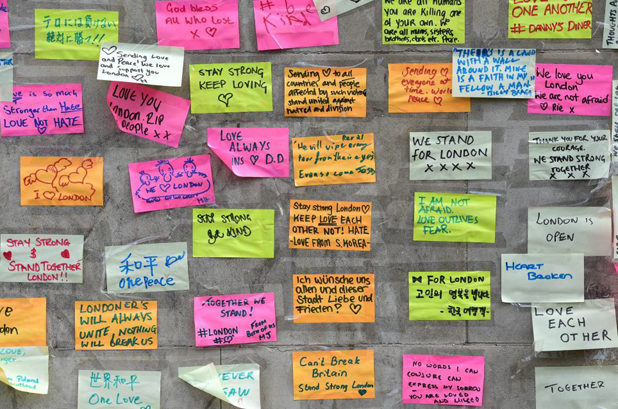 テロには負けない
絶対に勝つ!!
God bless
All who lost
X
We are all Humans
you are Killing one
of your own.
ONE ANOTHER
# DANNY'S DINER
Sending Love
and Peace! We love
and support you
London
STAY STRONG
KEEP LOVING
Sending ♡ to all
countries and people
affected by such violence
stand united against
hatred and division
Sending
everyone
time.
peace
THERE IS A LAND
WITH A WALL
AROUND IT. MINE
IS A FAITH IN MY
FELLOW MAN
BILLY BRAGG
We love you
London
We are not afraid
♡ Rie x
is so much
Stronger than Hate
LOVE NOT HATE
LOVE YOU
London. RIP
People x x
LOVE
ALWAYS
D.D
We will wipe every
tear from their eyes
WE STAND
FOR LONDON
X X X X
THANK YOU FOR YOUR
COURAGE.
WE STAND STRONG
TOGETHER
X X X
I ♡ LONDON
WE ♡ LONDON
STAY STRONG
BE KIND
Stay strong London ♡
KEEP LOVE EACH
OTHER NOT! HATE
-LOVE FROM S.KOREA-
I AM NOT
AFRAID.
LOVE OUTLIVES
FEAR.
LONDON IS
OPEN
STAY STRONG
&
STAND TOGETHER
LONDON!!
和平
One Peace
Ich wünsche uns
allen und dieser
Stadt Liebe und
Frieden! ♡
FOR LONDON
고인의 명복을 빕니다
HEART
BROKEN
LONDONER'S
WILL ALWAYS
UNITE, NOTHING
WILL BREAK US
-TOGETHER WE
STAND!
#LONDON
FROM
BOTH OF US
MJ
LOVE EACH
OTHER
世界和平
One Love
Can't Break
Britain
Stand Strong London
NO WORDS I CAN
CONJURE CAN
EXPRESS MY SORROW
YOU ARE LOVED
AND MISSED
TOGETHER